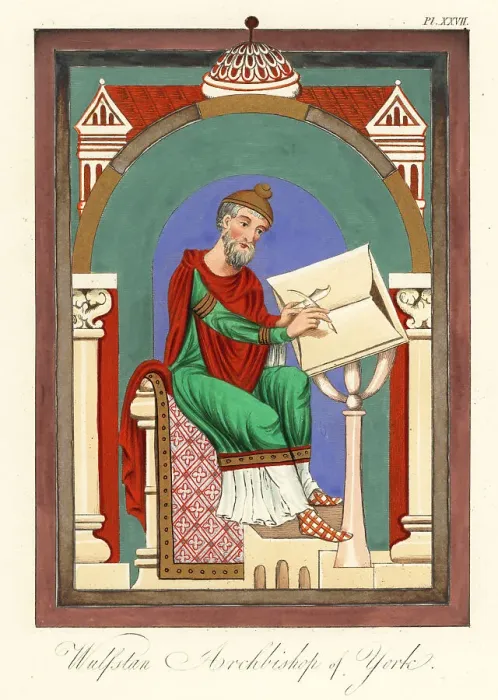 Pl. XXVII.
Wulfstan Archbishop of York.